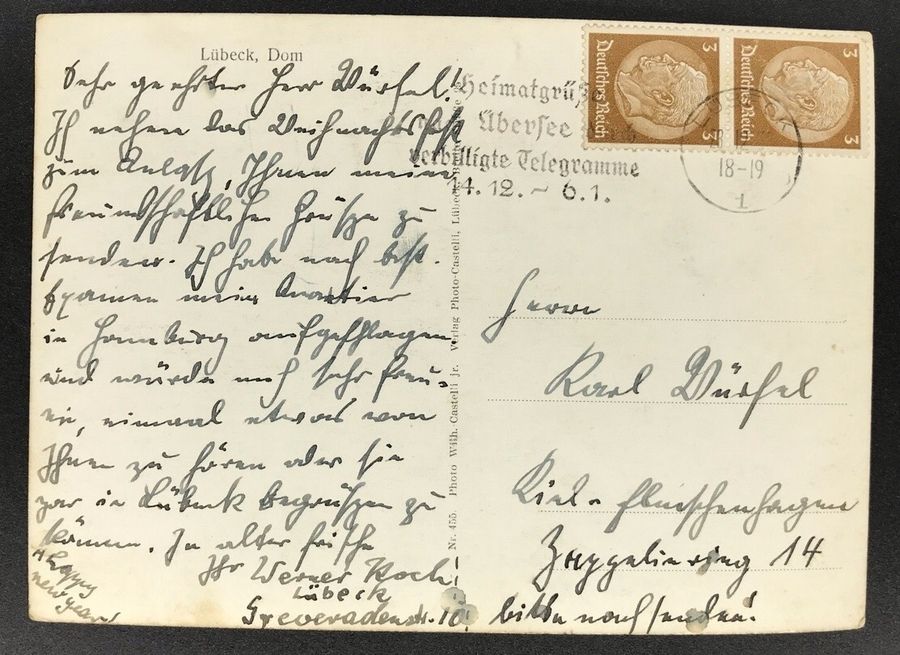 Lübeck, Dom
Sehr geehrter Herr Würfel!
Ich nehme das Weihnachtsfest
zum Anlass, Ihnen meine
freundschaftlichen Grüsse zu
senden. Ich habe nach best.
Examen mein Quartier
in Hamburg aufgeschlagen
und würde mich sehr freu-
en, einmal etwas von
Ihnen zu hören oder Sie
gar in Lübeck begrüssen zu
können. In alter Frische
Ihr Werner Koch
Lübeck
"Happy
new year"
Nr. 455. Photo Wilh. Castelli jr. Verlag Photo-Castelli, Lübeck,
Heimatgrüße
Übersee
verbilligte Telegramme
14.12. - 6.1.
Deutsches Reich 3 3
Deutsches Reich 3 3
18-19
1
Herrn
Karl Würfel
Kiel-
Zeppelinring 14
bitte nachsenden!